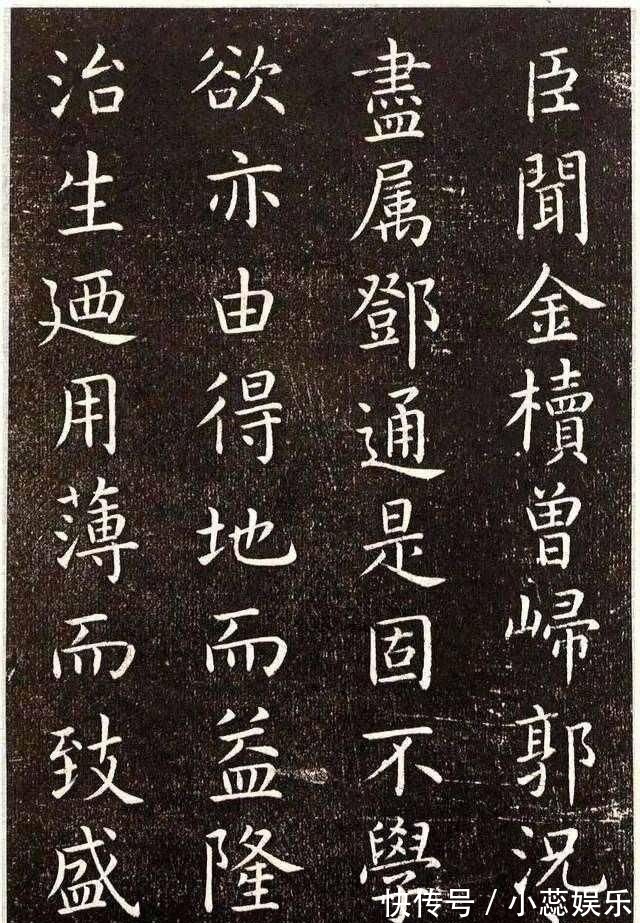 臣聞金櫝曾歸郭況
盡属鄧通是固不學
欲亦由得地而益隆
治生廼用薄而致盛
快传号／小蕊娱乐